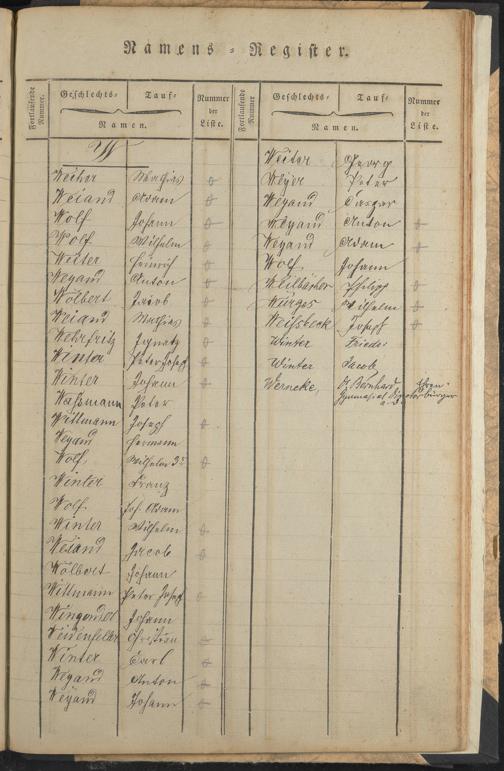 Namens-Register.
Fortlaufende Nummer. Geschlechts- Tauf- Nummer der Liste. Fortlaufende Nummer Geschlechts- Tauf- Nummer der Liste.
Namen. Namen.
W
Weiher Mathias
Weiand Adam
Wolf Johann
Wolf Wilhelm
Weiter Heinrich
Weyand Anton
Wölbert Jacob
Weiand Mathias
Wehrfritz Ignatz
Winter Peter Josef
Winter Johann
Waßmann Peter
Wittmann Joseph
Weyand Hermann
Wolf, Wilhelm 3r
Winter Franz
Wolf Joh. Adam
Winter Wilhelm
Weiand Jacob
Wölbert Johann
Wittmann Peter Josef
Wingender Johann
Weidenfeller Christian
Winter Carl
Weyand Anton
Weyand Johann
Weiter Georg
Weyer Peter
Weyand Caspar
Weyand Anton
Weyand Adam
Wolf Johann
Weilbächer Philipp
Würges Wilhelm
Weisbeck Josef
Winter Friedr
Winter Jacob
Wernecke, Dr. Bernhard Ehren-
Gymnasial Director bürger
a. D.